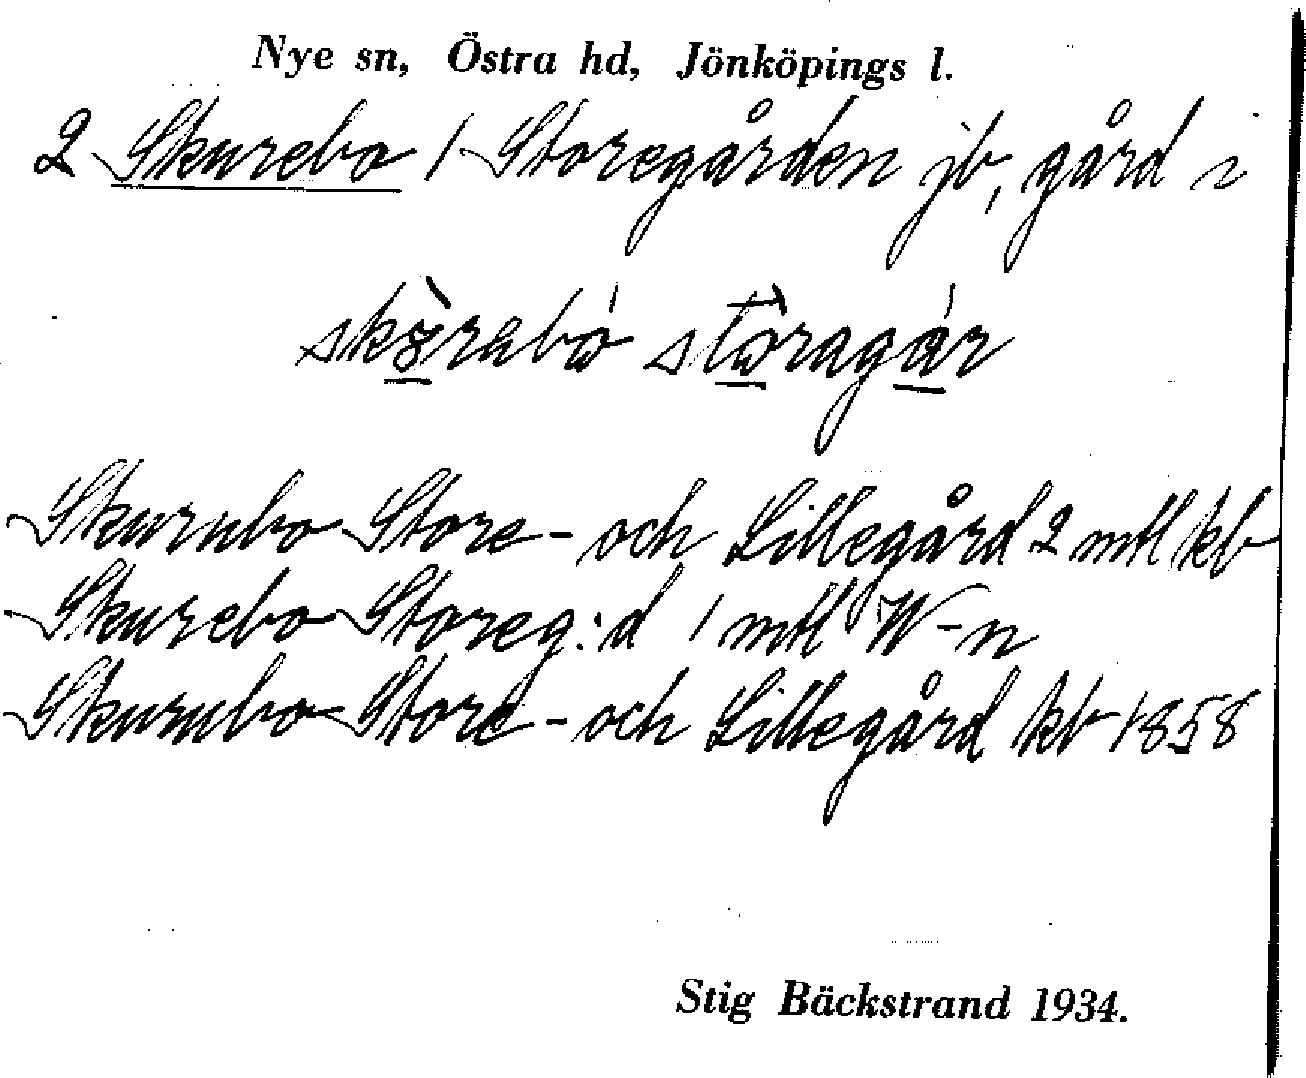 Nye sn, Östra hd, Jönköpings l.
2 Skurebo 1 Storegården jb, gård 2
Skurubo Store- och Lillegård 2 mtl kb
Skurebo Storeg:d 1 mtl W-n
Skurubo Store- och Lillegård kb 1858
Stig Bäckstrand 1934.